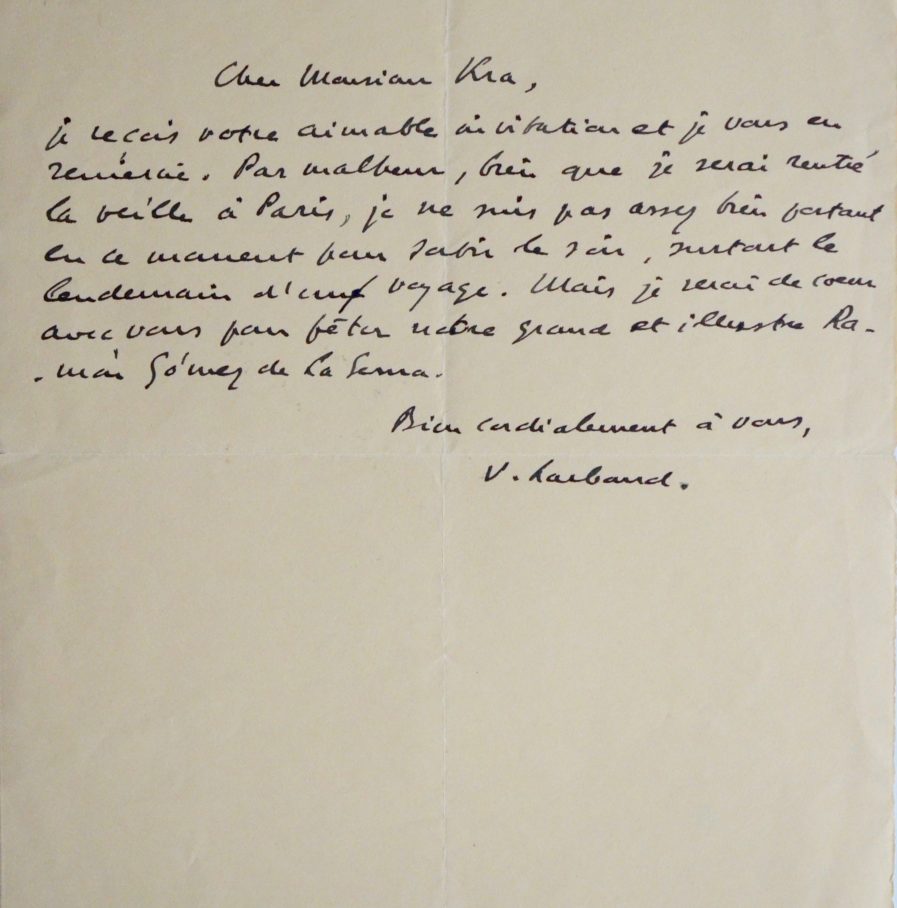 Cher Monsieur Kra,
je reçois votre aimable invitation et je vous en
remercie. Par malheur, bien que je serai rentré
la veille à Paris, je ne suis pas assez bien portant
en ce moment pour sortir le soir, surtout le
lendemain d'un voyage. Mais je serai de cœur
avec vous pour fêter notre grand et illustre Ra-
-món Gómez de La Serna.
Bien cordialement à vous,
V. Larbaud.